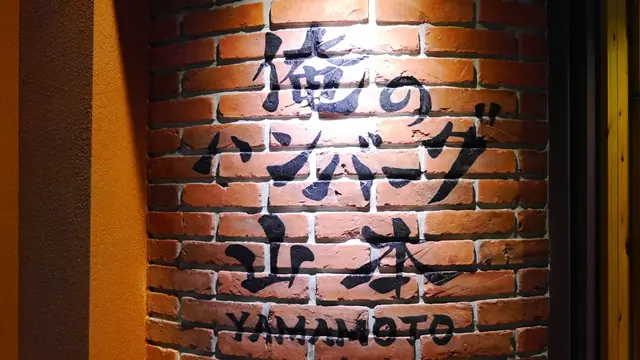 俺の
ハンバーグ
山本
YAMAMOTO